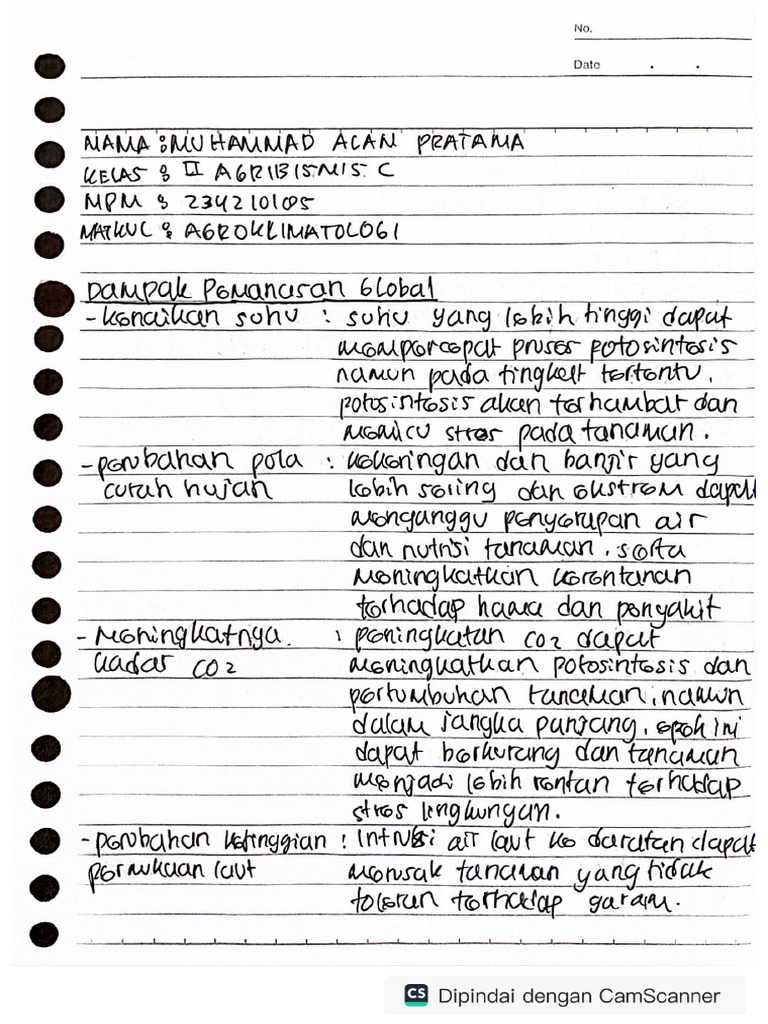 No.
Date . .
NAMA : MUHAMMAD ALAN PRATAMA
KELAS : II AGRIBISNIS C
NPM : 234210105
MATKUL : AGROKLIMATOLOGI
Dampak Pemanasan Global
- kenaikan suhu : suhu yang lebih tinggi dapat
mempercepat proses potosintesis
namun pada tingkat tertentu,
potosintesis akan terhambat dan
memicu stres pada tanaman.
- perubahan pola : kekeringan dan banjir yang
curah hujan lebih sering dan ekstrem dapat
menganggu penyerapan air
dan nutrisi tanaman, serta
meningkatkan kerentanan
terhadap hama dan penyakit
- Meningkatnya : peningkatan CO2 dapat
kadar CO2 meningkatkan potosintesis dan
pertumbuhan tanaman, namun
dalam jangka panjang, epek ini
dapat berkurang dan tanaman
menjadi lebih rentan terhadap
stres lingkungan.
- perubahan ketinggian : Intrusi air laut ke daratan dapat
permukaan laut merusak tanaman yang tidak
toleran terhadap garam.
CS Dipindai dengan CamScanner